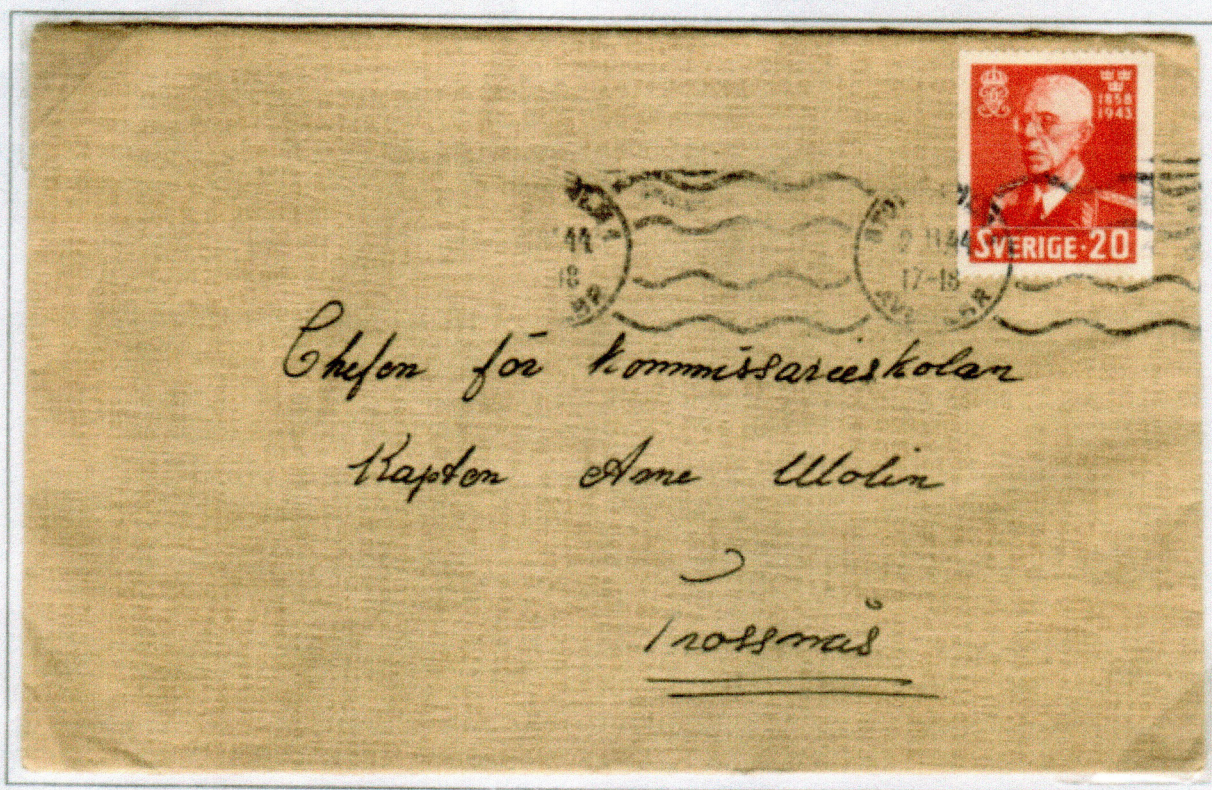 1858
1943
SVERIGE·20
44
18
2 11.44
17-18
Chefen för Kommissarieskolan
Kapten Arne Molin
Trossnäs